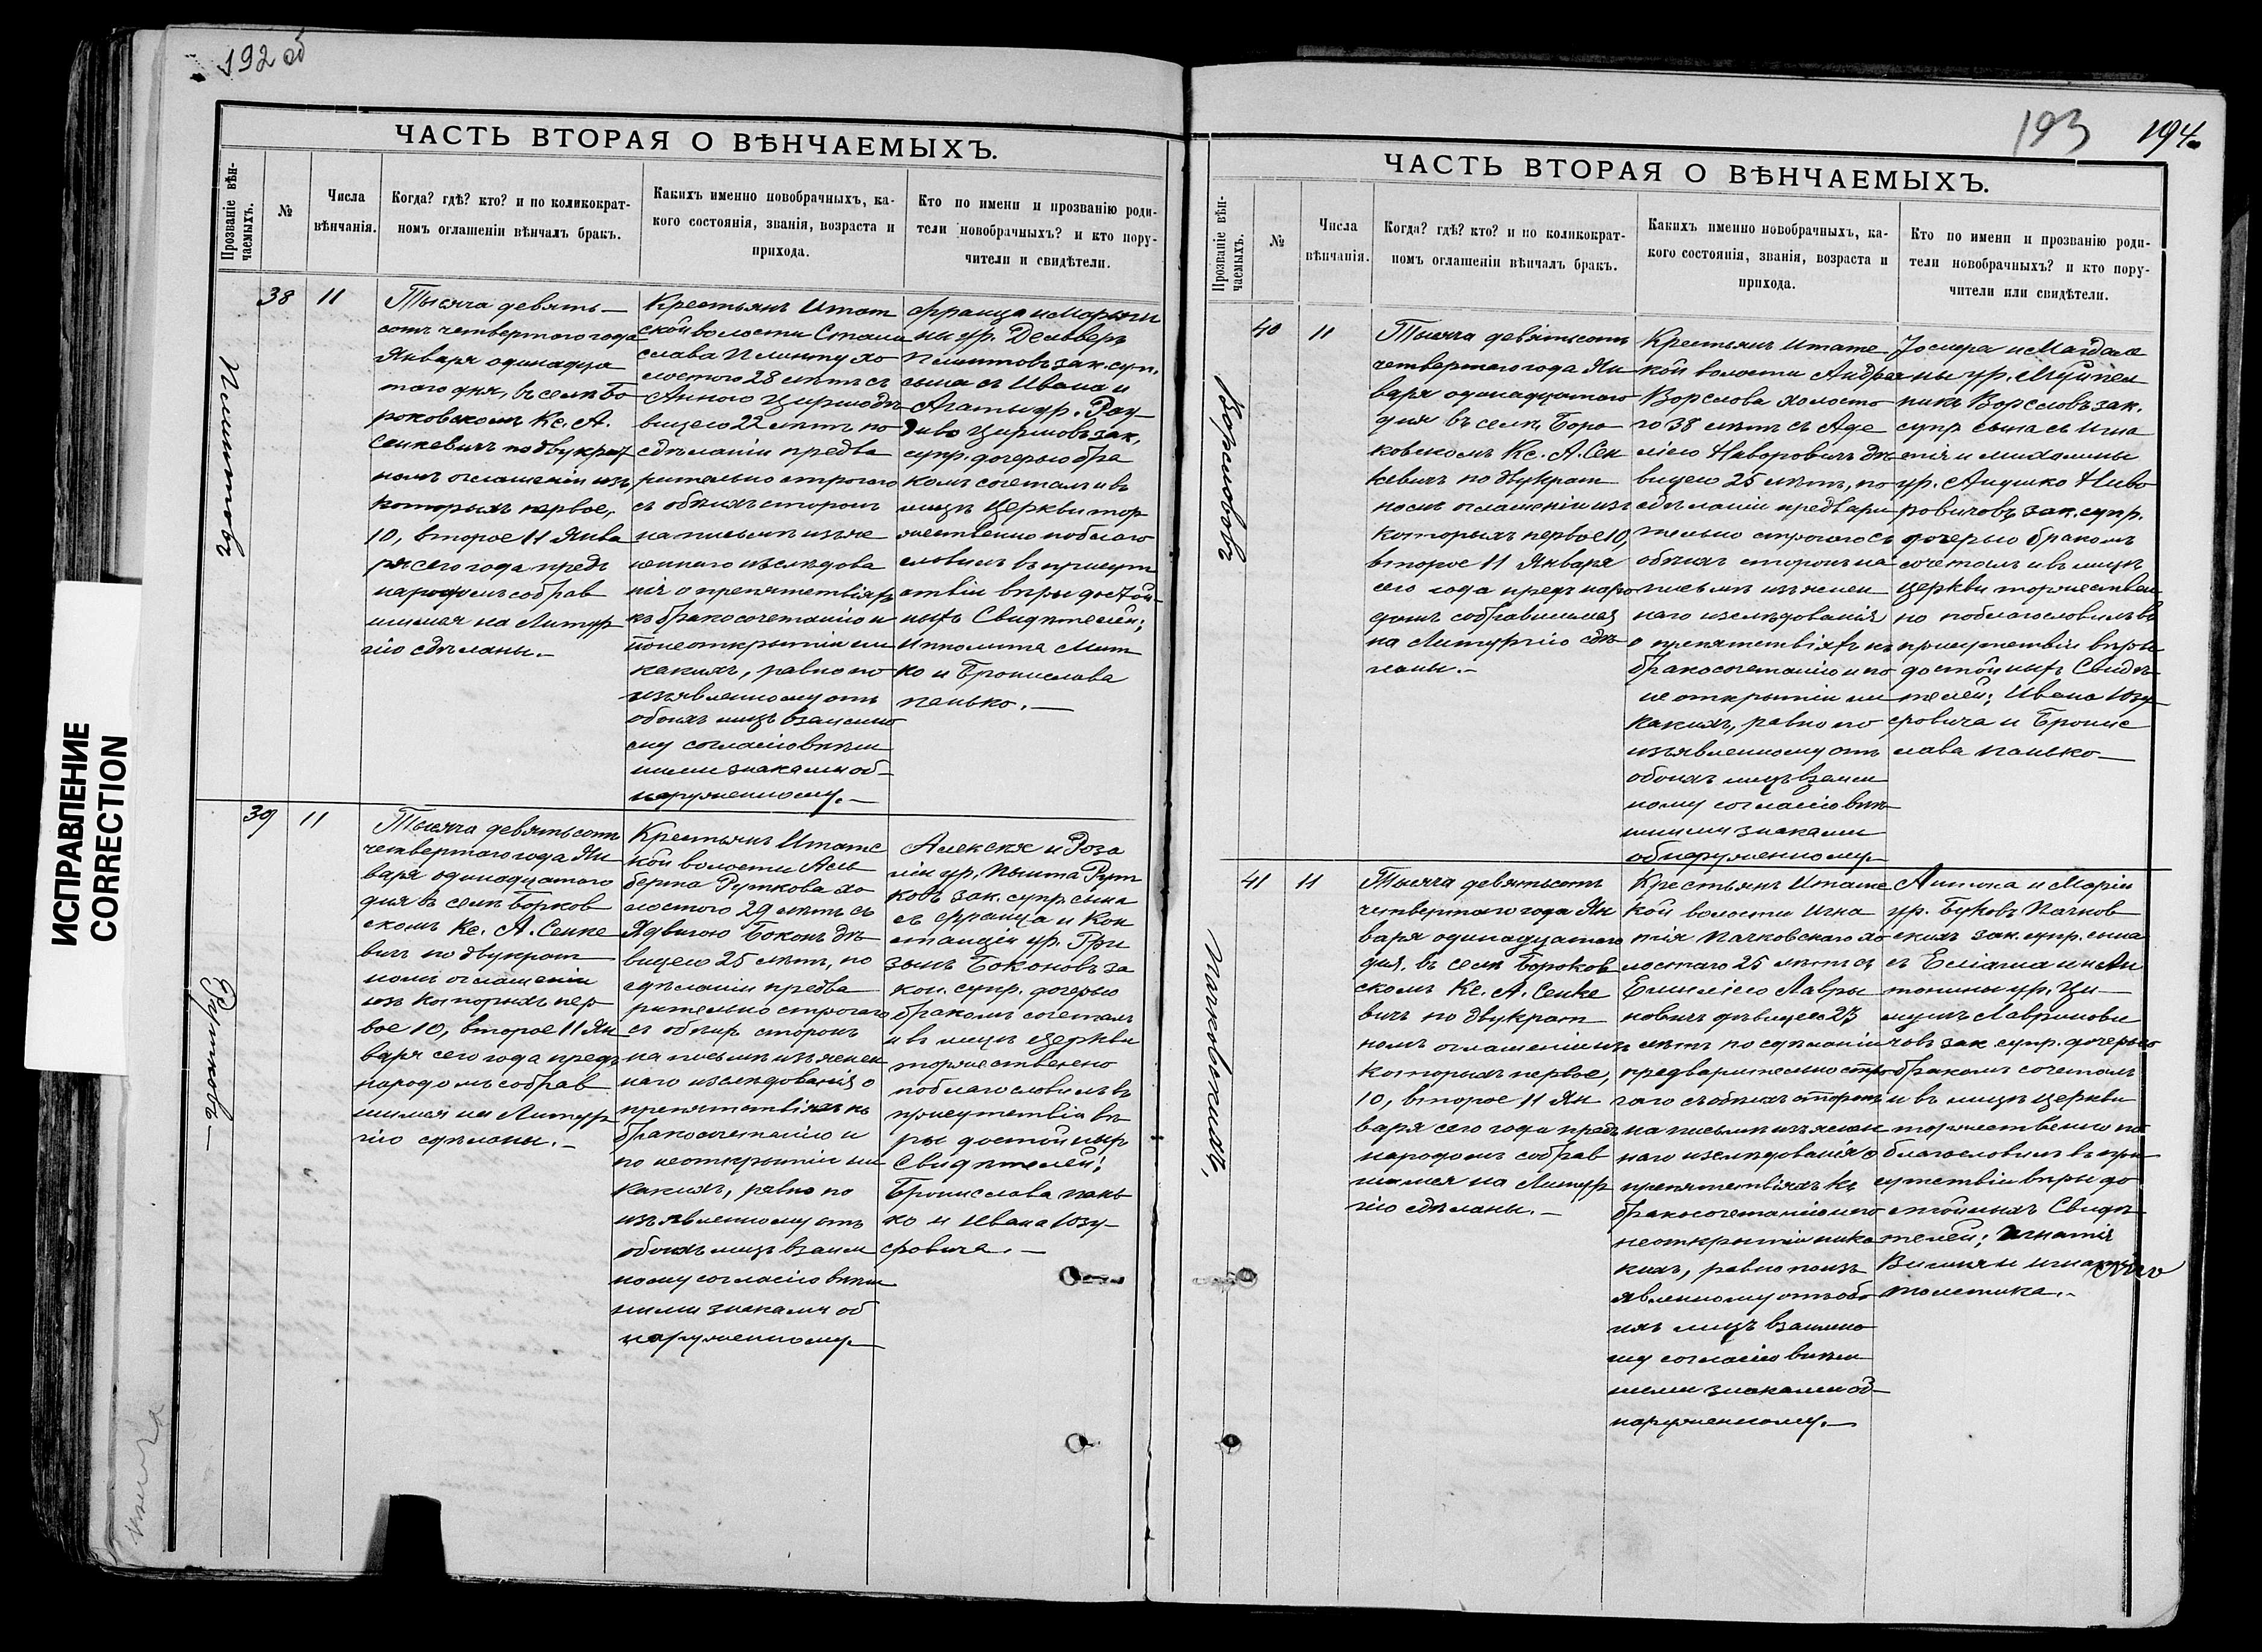 192 об
ЧАСТЬ ВТОРАЯ О ВѢНЧАЕМЫХЪ.
Прозваніе вѣн-
чаемыхъ.
№
Числа
вѣнчанія.
Когда? гдѣ? кто? и по коликократ-
номъ оглашеніи вѣнчалъ бракъ.
Какихъ именно новобрачныхъ, ка-
кого состоянія, званія, возраста и
прихода.
Кто по имени и прозванію роди-
тели новобрачныхъ? и кто пору-
чители и свидѣтели.
38
11
Тысяча девять-
сотъ четвертаго года
Января одинадца
таго дня, въ селѣ Бо
роковскомъ Кс. А.
Сенкевичъ по двукрат
номъ оглашеніи изъ
которыхъ первое,
10, второе 11 Янва
ря сего года предъ
народомъ собрав
шимся на Литур
гію сдѣланы.-
Крестьянъ Итат
ской волости Стани
слава Плинту хо
лостого 28 лѣтъ съ
Анною дѣ
вицею 22 лѣтъ по
сдѣланіи предва
рительно строгаго
съ обѣихъ сторонъ
на письмѣ изъяс
неннаго изслѣдова
нія о препятствіяхъ
къ бракосочетанію и
понеоткрытіи ни
какихъ, равно по
изъявленному отъ
обоихъ лицъ взаимно
му согласію внѣш
ними знаками об-
наруженному.-
Франца и Марьян
ны ур.
зак. суп.
сына съ Ивана и
Агаты ур.
зак.
супр. дочерью бра
комъ сочеталъ и въ
лицѣ Церкви тор
жественно поблаго
словилъ въ присут
ствіи вѣры достой-
ныхъ Свидѣтелей;
Ипполита Мит
ко и Бронислава
Панько.-
39
11
Рутковъ-
Тысяча девятьсотъ
четвертаго года Ян
варя одинадцатаго
дня въ селѣ Борков
скомъ Кс. А. Сенке
вичъ по двукрат
номъ оглашеніи
изъ которыхъ пер
вое 10, второе 11 Ян
варя сего года предъ
народомъ собрав
шимся на Литур
гію сдѣланы.-
Крестьянъ Итатс
кой волости Аль
берта Руткова хо
лостого 29 лѣтъ съ
Ядвигою Боконъ дѣ
вицею 25 лѣтъ, по
сдѣланіи предва
рительно строгаго
съ обѣихъ сторонъ
на письмѣ изъяснен
наго изслѣдованія о
препятствіяхъ къ
бракосочетанію и
по неоткрытіи ни
какихъ, равно по
изъявленному отъ
обоихъ лицъ взаим
ному согласію внѣш
ними знаками об
наруженному.-
Алексѣя и Роза
ліи ур. Рут
ковъ зак. супр. сына
съ Франца и Кон
станціи ур. Гри
Боконовъ за
кон. супр. дочерью
бракомъ сочеталъ
и въ лицѣ Церкви
торжественно
поблагословилъ въ
присутствіи вѣ
ры достойныхъ
Свидѣтелей:
Бронислава Пань
ко и Ивана Юзу-
фовича.-
193
194
ЧАСТЬ ВТОРАЯ О ВѢНЧАЕМЫХЪ.
Прозваніе вѣн-
чаемыхъ.
№
Числа
вѣнчанія.
Когда? гдѣ? кто? и по коликократ-
номъ оглашеніи вѣнчалъ бракъ.
Какихъ именно новобрачныхъ, ка-
кого состоянія, званія, возраста и
прихода.
Кто по имени и прозванію роди-
тели новобрачныхъ? и кто пору-
чители или свидѣтели.
40
11
Ворсловъ
Тысяча девятьсотъ
четвертаго года Ян
варя одинадцатаго
дня въ селѣ Боро
ковскомъ Кс. А. Сен
кевичъ по двукрат
номъ оглашеніи изъ
которыхъ первое 10,
второе 11 Января
сего года предъ наро
домъ собравшимся
на Литургію сдѣ
ланы.-
Крестьянъ Итатс
кой волости Андрея
Ворслова холосто
го 38 лѣтъ съ Аде
ліею дѣ
вицею 25 лѣтъ, по
сдѣланіи предвари
тельно строгаго съ
обѣихъ сторонъ на
письмѣ изъяснен
наго изслѣдованія
о препятствіяхъ къ
бракосочетанію и по
не открытіи ни
какихъ, равно по
изъявленному отъ
обоихъ лицъ взаим
ному согласію внѣ
шними знаками
обнаруженному-
Іосифа и Магдале
ны ур.
Ворсловъ зак.
супр. сына съ Игна
тія и Михалины
ур.
зак. супр.
дочерью бракомъ
сочеталъ и въ лицѣ
Церкви торжествен
но поблагословилъ въ
присутствіи вѣры
достойныхъ Свидѣ
телей; Ивана Юзу-
фовича и Бронис
лава Панько-
41
11
Пачковскихъ,
Тысяча девятьсотъ
четвертаго года Ян
варя одинадцатаго
дня, въ селѣ Бороков
скомъ Кс. А. Сенке
вичъ по двукрат
номъ оглашеніи изъ
которыхъ первое,
10, второе 11 Ян
варя сего года предъ
народомъ собрав
шимся на Литур
гію сдѣланы.-
Крестьянъ Итатс
кой волости Игна
тія Пачковскаго хо
лостаго 25 лѣтъ съ
Емиліею Лаври
новичъ дѣвицею 23
лѣтъ по сдѣланіи
предварительно стро
гаго съ обѣихъ сторонъ
на письмѣ изъяснен
наго изслѣдованія о
препятствіяхъ къ
бракосочетанію и по
неоткрытіи ника
кихъ, равно по изъ
явленному отъ обо
ихъ лицъ взаимно
му согласію внѣш
ними знаками об-
наруженному.-
Антона и Маріи
ур. Буковъ Пачков
скихъ зак. супр. сына
съ и Ан
тонины ур.
Лавринови
човъ зак. супр. дочерью
бракомъ сочеталъ
и въ лицѣ Церкви
торжественно по
благословилъ въ при
сутствіи вѣры до
стойныхъ Свидѣ
телей; Игнатія
и